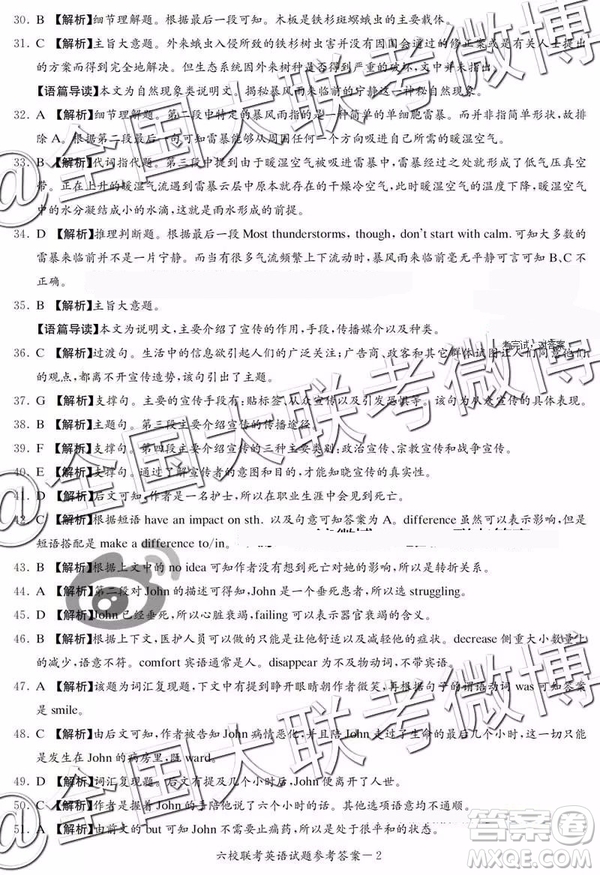 30. B 【解析】细节理解题。根据最后一段可知。木板是铁杉斑螟蛾虫的食物。
31. C 【解析】主旨大意题。外来蛾虫入侵所致的铁杉树虫害并不会由于适当的修正案或是有关人士提出
的方案而得到完全地解决。但生态系统因其自身内部动态平衡能使其得以恢复。
【语篇导读】本文为自然现象类说明文。揭秘暴风雨来临前的宁静这一种自然现象。
32. A 【解析】细节理解题。第二段中特定的暴风雨而非所有的暴风雨。形式简单而非指简单形状,故排
除A。根据第二段最后一句,可知雷暴能够从周围任何一个方向吸入进自己所需的暖湿空气。
33. B 【解析】代词指代题。第三段中提到由于暖湿空气被吸进雷暴中,根据经过之处就形成了低气压真空
带。正在上升的暖气流遇到雷暴云层中原本就存在的干燥冷空气,从而降低了暖湿空气的温度,其中
的水分凝结成小的水滴,这是雨水形成的前提。
34. D 【解析】推理判断题。根据最后一段Most thunderstorms, though, don't start with calm.可知大多数的
雷暴来临前不是一片宁静。而且有很多气流频繁地移动着,暴风雨来临前毫无平静可言可知B、C不
正确。
35. B 【解析】主旨大意题。
【语篇导读】本文为说明文,主要介绍了宣传的作用,手段,传播媒介以及种类。
36. C 【解析】过渡句。生活中的信息欲引起人们的广泛关注;广告商和其它群体试图让人们同意他们的
观点,都离不开宣传造势,该句从而引出了主题。
37. G 【解析】支撑句。主要的宣传手段有:贴标签,从众以及情感唤起等。该句为从众心理的解释。
38. B 【解析】主题句。第三段主要介绍宣传的传播途径。
39. F 【解析】支撑句。第四段主要介绍宣传的三种主要类别,政治宣传、宗教宣传和战争宣传。
40. E 【解析】支撑句。通过了解宣传者的意图和目的,才能知晓宣传的真实性。
41. D 【解析】后文可知,作者是一名护士,所以在职业生涯中会见到死亡。
42. C 【解析】根据短语have an impact on sth. 以及句意可知答案为A。difference虽然可以表示影响,但是
短语搭配是make a difference to/in。
43. B 【解析】根据上文中的no idea可知作者没有意识到死亡对她的影响,所以是转折关系。
44. A 【解析】第二段对John的描写可知,John是一个垂死患者,所以是struggling。
45. D 【解析】John已经垂死,所以是心脏衰竭,failing可以表示器官衰竭的含义。
46. B 【解析】根据上下文,医护人员可以做的很少,所以尝试让他舒适以及缓解他的痛苦。decrease侧重大小数量上
的减少,语意不符。comfort宾语通常是人,disappear为不及物动词不能带宾语。
47. A 【解析】该题为词汇复现题。下文中有提到John睁开眼睛朝作者微笑,再根据句意可知可知答案
是smile。
48. C 【解析】由后文可知,作者被告知John病情恶化,并且由于同事承担了其他病人的看护工作,所以
完美的答案是去John的病房里,既ward。
49. D 【解析】词汇复现题。根据后文可知,John最后离开了人世。
50. C 【解析】作者是握着John的手陪他说了六个小时的话。其他选项语意均不通顺。
51. A 【解析】由前文的John已经垂死可知。作者是一直处于很平和的状态。
六校联考英语试题参考答案－2
@全国大联考微博